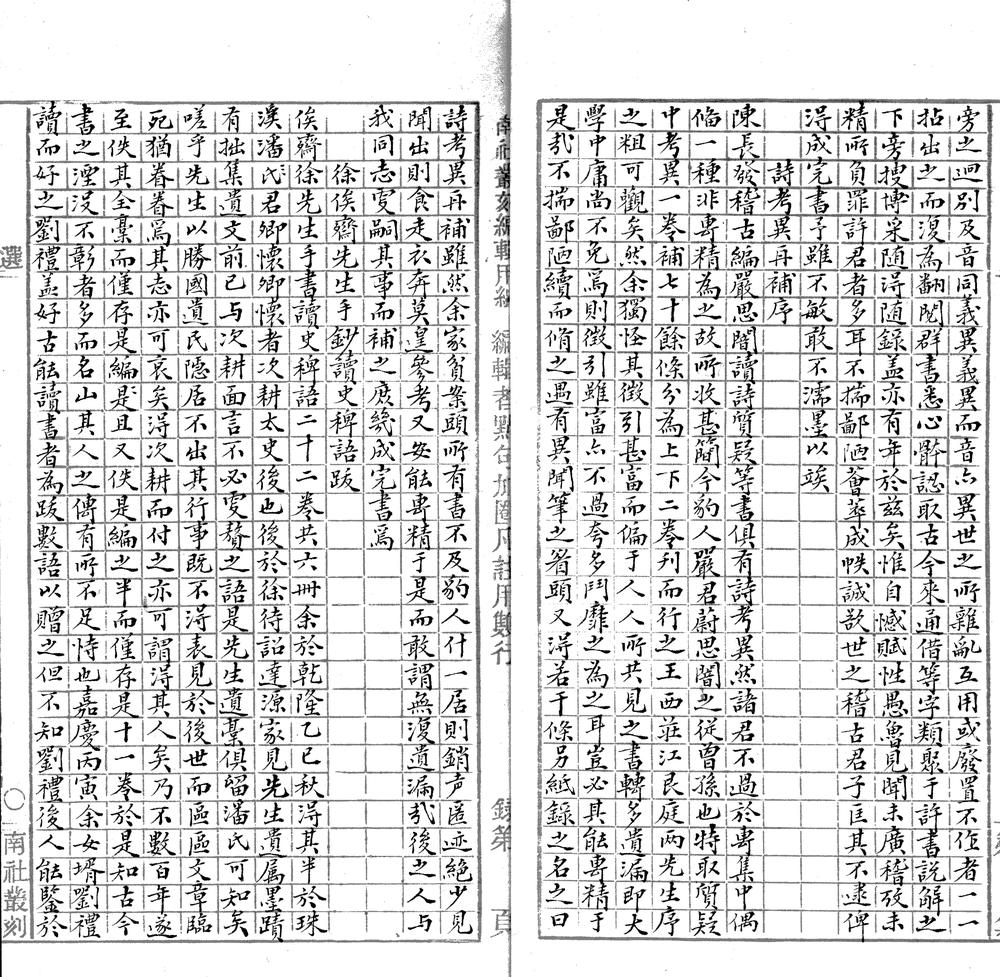 旁之迥别及音同義異義異而音亦異世之所雜亂互用或廢置不徃者一一
拈出之而復為翻閱群書悉心辭認取古今來通借等字類聚于許書說解之
下旁搜博采随得随錄盖亦有年於兹矣惟自憾賦性愚魯見聞未廣稽攷未
精所負罪許君者多耳不揣鄙陋薈萃成帙誠欲世之稽古君子匡其不逮俾
得成完書予雖不敏敢不濡墨以竢
詩考異再補序
陳長發稽古編嚴思闇讀詩質疑等書俱有詩考異然諸君不過於專集中偶
俻一種非專精為之故所收甚簡今豹人嚴君蔚思闇之從曾孫也特取質疑
中考異一卷補七十餘條分為上下二卷刋而行之王西莊江艮庭两先生序
之粗可觀矣然余獨怪其徵引甚富而偏于人人所共見之書轉多遺漏即大
學中庸尚不免焉則徵引雖富亦不過夸多鬥靡之為之耳豈必其能專精于
是㢤不揣鄙陋續而脩之遇有異聞筆之眷頭又得若干條另紙錄之名之曰
南社叢刻編輯用紙 編輯者點句加圈凡註用雙行 錄第 頁
詩考異再補雖然余家貧案頭所有書不及豹人什一居則銷声匿迹絕少見
聞出則食走衣奔莫遑參考又安能專精于是而敢謂無復遺漏㢤後之人與
我同志雯嗣其事而補之庶幾成完書焉
徐俟齋先生手鈔讀史稗語跋
俟齋徐先生手書讀史稗語二十二卷共六冊余於乾隆乙巳秋得其半於珠
溪潘氏君卿懷卿懷者次耕太史後也後於徐待詔達源家見先生遺属墨蹟
有拙集遺文前已与次耕面言不必雯贅之語是先生遺藁俱留潘氏可知矣
嗟乎先生以勝國遺民隱居不出其行事既不得表見於後世而區區文章臨
死猶眷眷焉其志亦可哀矣得次耕而付之亦可謂得其人矣乃不數百年遂
至佚其全藁而僅存是編是且又佚是編之半而僅存是十一卷於是知古今
書之湮沒不彰者多而名山其人之傳有所不足恃也嘉慶丙寅余女壻劉禮
讀而好之劉禮盖好古能讀書者為跋數語以贈之但不知劉禮後人能鑒於
選 ○ 南社叢刻